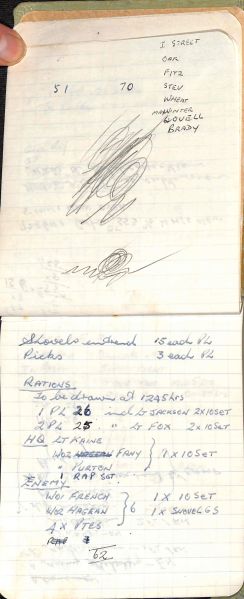 I STREET
OAR
FITZ
51 70 STEV
WHEAT
MANWINTER
LOVELL
BRADY
Shovels entrend 15 each PL
Picks 3 each PL
RATIONS
To be drawn at 1245 hrs
1 PL 26 incl LT JACKSON 2x10SET
2 PL 25. " LT FOX 2x10SET
HQ LT KAINE
WO2 FAHY } 1 x 10 SET
" PURTON
1 RAP SGT
ENEMY
WO1 FRENCH 1 x 10SET
WO2 HAGEAN } 6 1 x
4 x PTES
62